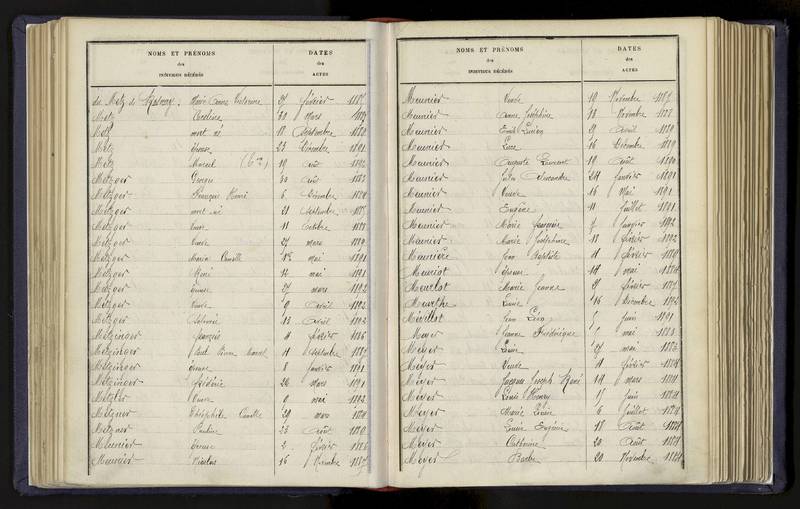 NOMS ET PRÉNOMS
des
INDIVIDUS DÉCÉDÉS
DATES
des
ACTES
du Metz de Marie Anne Victorine 27 février
Metz Caroline 30 Mars
Metz mort né 18 Septembre
Metz Épouse 23 Décembre 1891
Metz Marcel 19 août 1892
Metzger Georges 30 août 1883
Metzger François René 6 Décembre 1884
Metzger mort né 21 Septembre
Metzger Veuve 11 Octobre 1888
Metzger Veuve 27 mars 1889
Metzger Maria Camille 1er mai 1891
Metzger René 14 mai 1891
Metzger 27 mars 1892
Metzger Veuve 9 Avril 1892
Metzger 13 Avril 1892
Metzinger François 4 février 1886
Metzinger Paul Pierre Marcel 11 Septembre 1887
Metzinger Épouse 8 Janvier 1891
Metzinger Frédéric 26 Mars 1891
Metzler Veuve 9 mai 1892
Metzner Théophile Camille 29 mars
Metzner Pauline 23 Août 1889
Meunier 2 février 1886
Meunier Nicolas 16 Novembre 1887
NOMS ET PRÉNOMS
des
INDIVIDUS DÉCÉDÉS
DATES
des
ACTES
Meunier Veuve 19 Novembre 1887
Meunier Anne Joséphine 18 Novembre 1888
Meunier Emile Lucien 29 Avril 1889
Meunier Luce 26 Décembre 1889
Meunier Auguste Laurent 19 Août 1890
Meunier Jules Alexandre 24 Janvier 1891
Meunier Veuve 16 Mai 1891
Meunier Eugène 11 Juillet 1891
Meunier Marie Françoise 7 Janvier 1892
Meunier Marie Joséphine 18 février 1892
Meunière Jean Baptiste 11 février 1889
Meuriot Épouse 14 mai 1884
Meurlot Marie Jeanne 29 février 1887
Meurthe Louise 16 Décembre 1892
Mévillot Jean Léon 5 Juin 1891
Meyer Jeanne Frédérique mai 1883
Meyer Louise 27 mai 1883
Meyer Veuve 11 février 1884
Meyer Jacques Joseph René 14 mars 1884
Meyer Louis Henry 17 Juin 1884
Meyer Marie Louise 6 Juillet 1884
Meyer Louise Eugénie 18 Août 1884
Meyer Catherine 20 Août 1884
Meyer Barbe 20 Novembre 1884